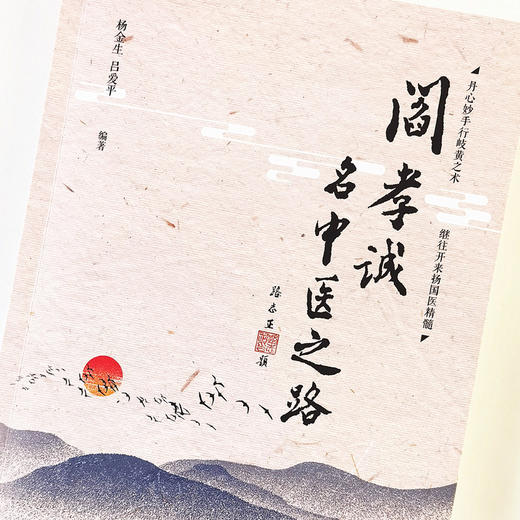 丹心妙手行岐黄之术
继往开来扬国医精髓
阎孝诚
名中医之路
路志正
题
杨金生 吕爱平
编著